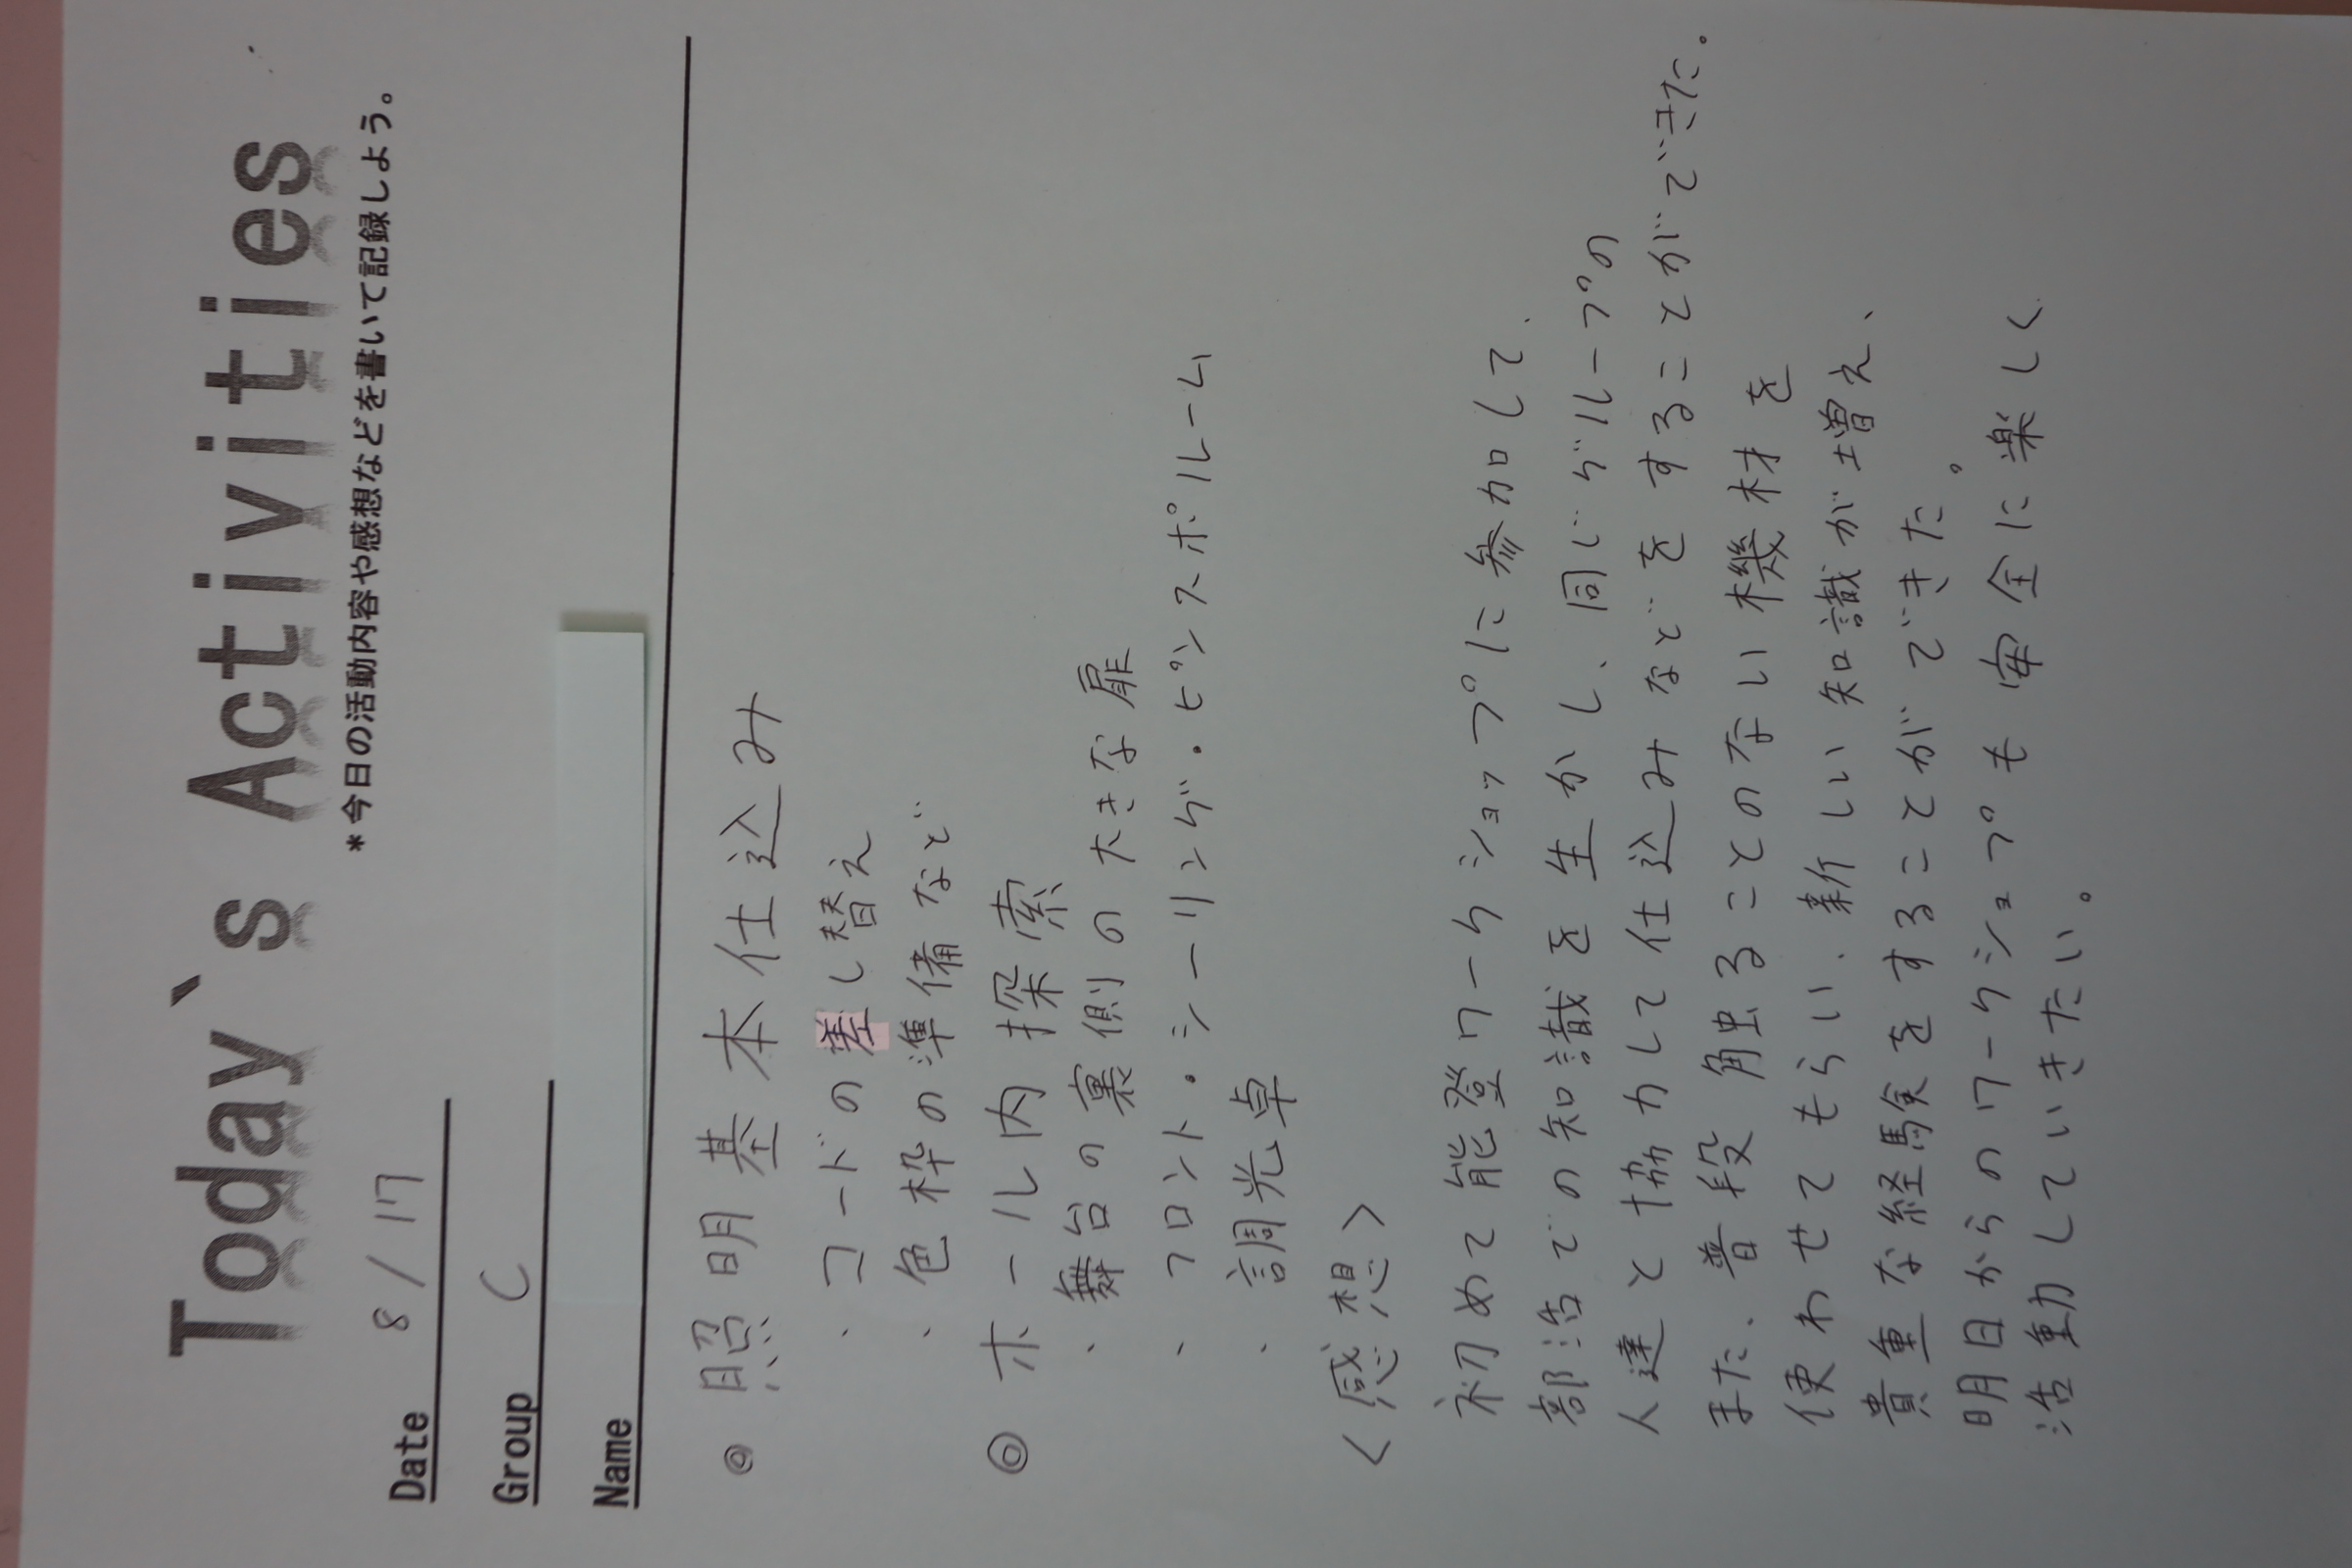 Today`s Activities
*今日の活動内容や感想などを書いて記録しよう。
Date 8/17
Group C
Name
◎ 照明基本仕込み
・コードの差し替え
・色枠の準備など
◎ ホール内探索
・舞台の裏側の大きな扉
・フロント・シーリング・ピンスポルーム
・調光卓
<感想>
初めて能登ワークショップに参加して、
部活での知識を生かし、同じグループの
人達と協力して仕込みなどをすることができた。
また、普段触ることのない機材を
使わせてもらい、新しい知識が増え、
貴重な経験をすることができた。
明日からのワークショップも安全に楽しく
活動していきたい。